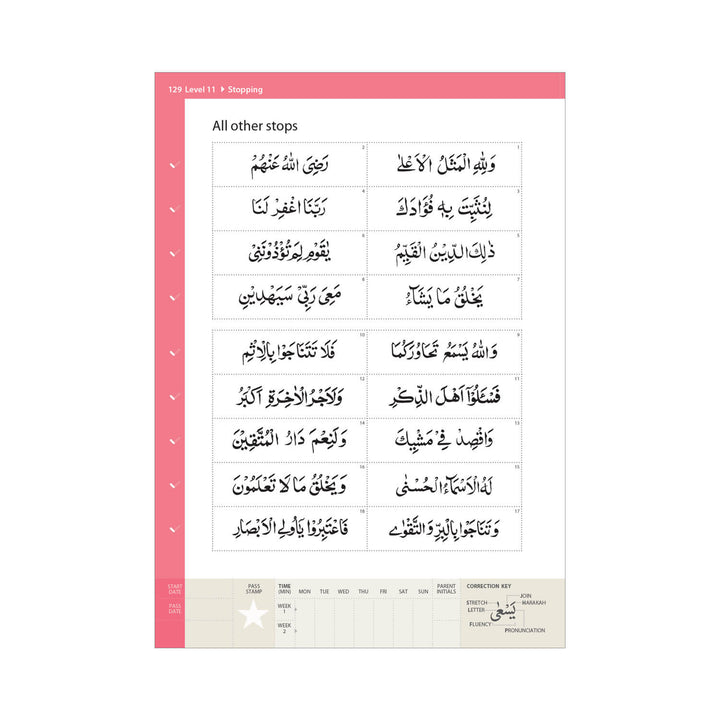 129 Level 11 ▸ Stopping
All other stops
1 وَلِلّٰهِ الْمَثَلُ الْاَعْلٰى
2 رَضِيَ اللّٰهُ عَنْهُمْ
3 لِنُثَبِّتَ بِهٖ فُؤَادَكَ
رَبَّنَا اغْفِرْ لَنَا
5 ذٰلِكَ الدِّيْنُ الْقَيِّمُ
6 يٰقَوْمِ لِمَ تُؤْذُوْنَنِيْ
7 يَخْلُقُ مَا يَشَآءُ
8 مَعِيَ رَبِّيْ سَيَهْدِيْنِ
9 وَاللّٰهُ يَسْمَعُ تَحَاوُرَكُمَا
10 فَلَا تَتَنَاجَوْا بِالْاِثْمِ
11 فَسْـَٔلُوْٓا اَهْلَ الذِّكْرِ
12 وَلَاَجْرُ الْاٰخِرَةِ اَكْبَرُ
13 وَاقْصِدْ فِيْ مَشْيِكَ
14 وَلَنِعْمَ دَارُ الْمُتَّقِيْنَ
15 لَهُ الْاَسْمَآءُ الْحُسْنٰى
16 وَيَخْلُقُ مَا لَا تَعْلَمُوْنَ
17 وَتَنَاجَوْا بِالْبِرِّ وَالتَّقْوٰى
18 فَاعْتَبِرُوْا يٰٓاُولِي الْاَبْصَارِ
START DATE
PASS DATE
PASS STAMP
TIME (MIN) MON TUE WED THU FRI SAT SUN PARENT INITIALS
WEEK 1
WEEK 2
CORRECTION KEY
JOIN
STRETCH HARAKAH
LETTER يَسْعٰى
FLUENCY
PRONUNCIATION